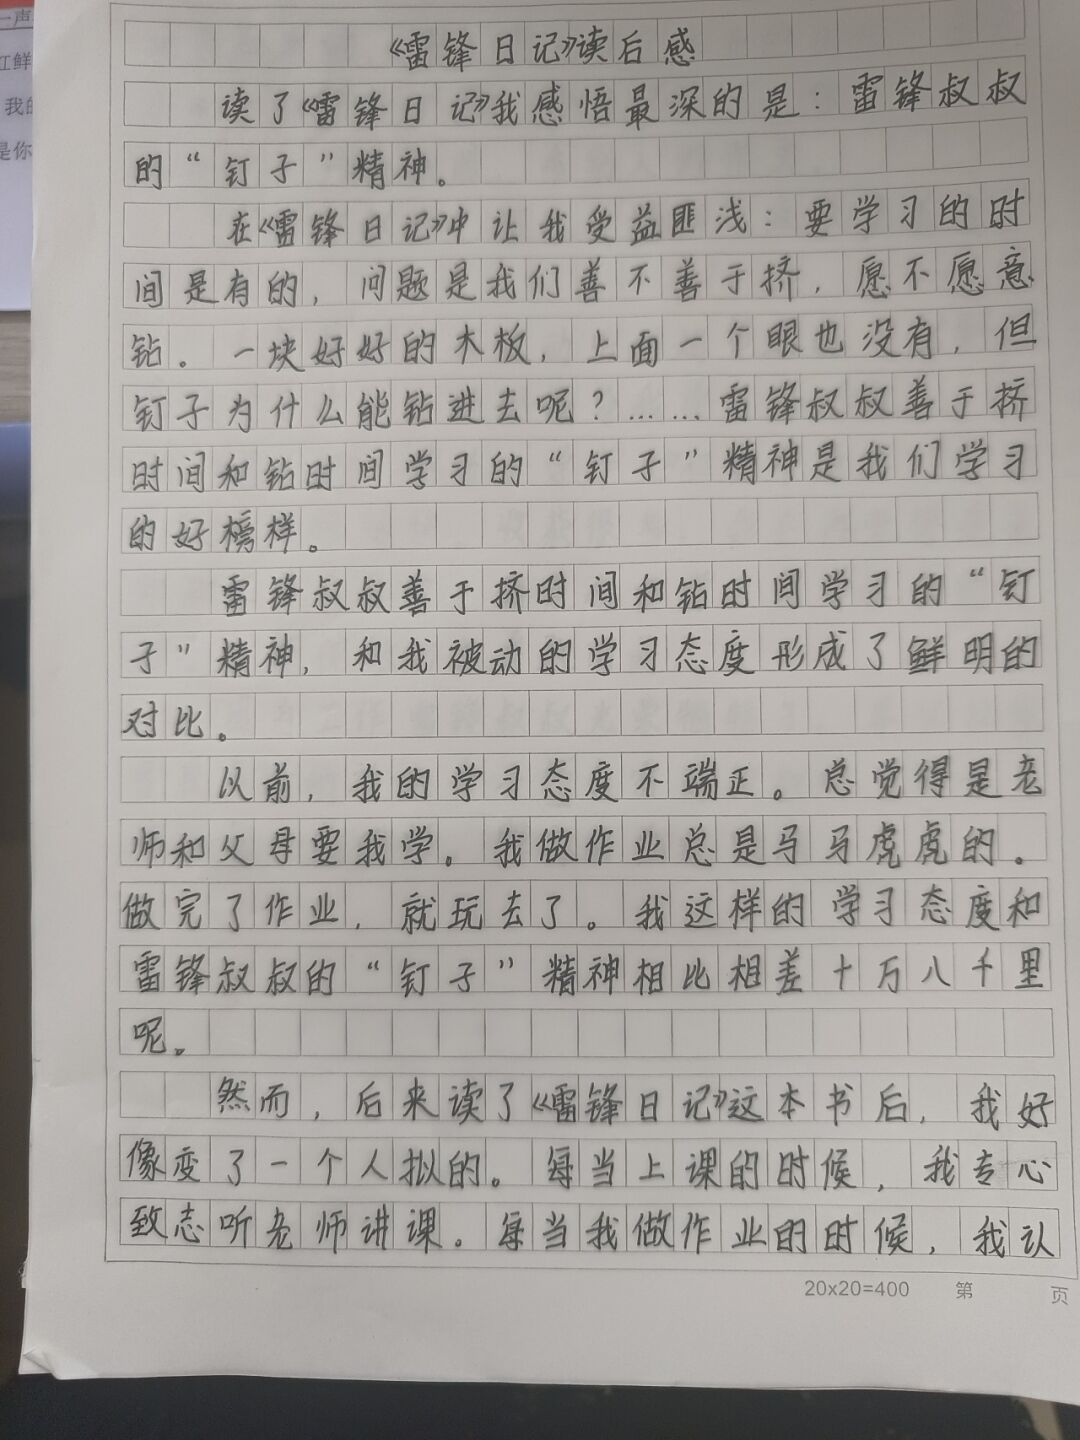 一声
红鲜
我的
是你
《雷锋日记》读后感
读了《雷锋日记》我感悟最深的是：雷锋叔叔
的“钉子”精神。
在《雷锋日记》中让我受益匪浅：要学习的时
间是有的，问题是我们善不善于挤，愿不愿意
钻。一块好好的木板，上面一个眼也没有，但
钉子为什么能钻进去呢？……雷锋叔叔善于挤
时间和钻时间学习的“钉子”精神是我们学习
的好榜样。
雷锋叔叔善于挤时间和钻时间学习的“钉
子”精神，和我被动的学习态度形成了鲜明的
对比。
以前，我的学习态度不端正。总觉得是老
师和父母要我学。我做作业总是马马虎虎的。
做完了作业，就玩去了。我这样的学习态度和
雷锋叔叔的“钉子”精神相比相差十万八千里
呢。
然而，后来读了《雷锋日记》这本书后，我好
像变了一个人拟的。每当上课的时候，我专心
致志听老师讲课。每当我做作业的时候，我认
20x20=400 第 页